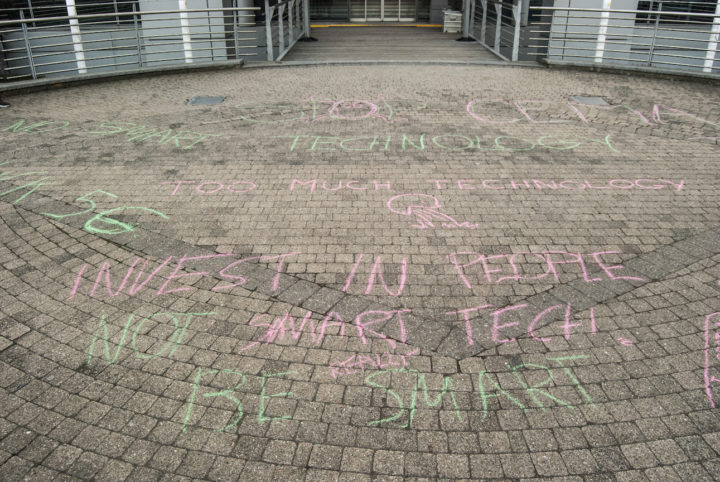 STOP
NO SMART TECHNOLOGY
TOO MUCH TECHNOLOGY
5G
INVEST IN PEOPLE
NOT SMART TECH.
REALLY
BE SMART